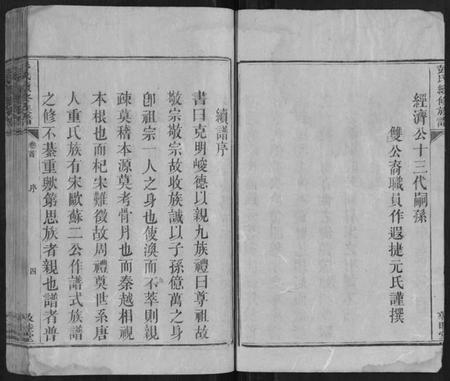 彭氏續修族譜
經濟公十三代嗣孫
雙公裔職員作遐捷元氏謹撰
續譜序
書曰克明峻德以親九族禮曰尊祖故
敬宗敬宗故收族誠以子孫億萬之身
卽祖宗一人之身也使渙而不萃則親
疎莫稽本源莫考骨月也而秦越相視
本根也而杞宋難徵故周禮奠世系唐
人重氏族有宋歐蘇二公作譜式族譜
之修不綦重歟第思族者親也譜者普
卷首
序
四